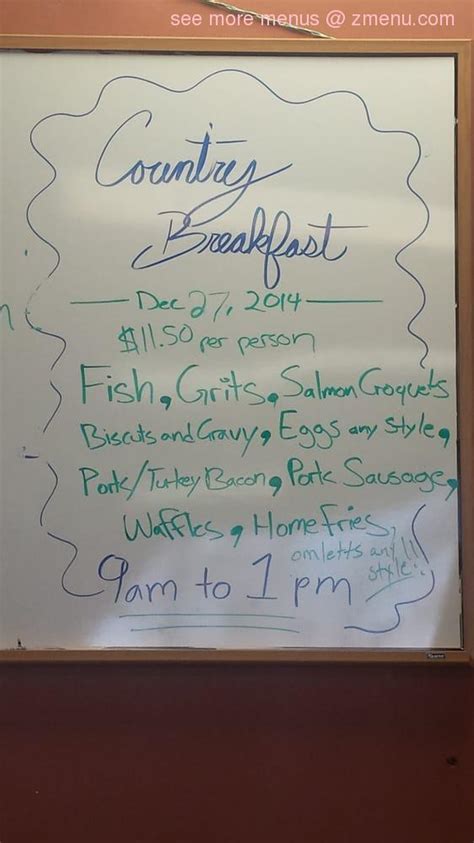 see more menus @ zmenu.com
Country
Breakfast
Dec 27, 2014
$11.50 per person
Fish, Grits, Salmon Croquets
Biscuts and Gravy, Eggs any style,
Pork/Turkey Bacon, Pork Sausage,
Waffles, Home Fries,
omletts any
style!!
9am to 1 pm